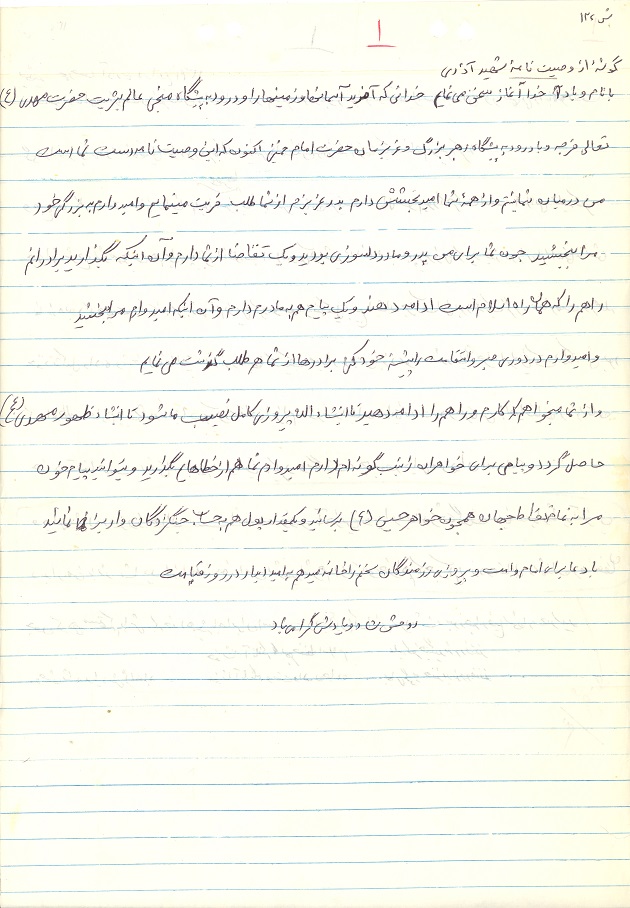 ش ۱۲۲
۱
گوشه‌ای از وصیت نامه شهید آذری
با نام و یاد خدا آغاز سخن می نمایم خدائی که آفرید آسمانها و زمینها را و درود به پیشگاه منجی عالم بشریت حضرت مهدی (ع)
تعالی فرجه و با درود به پیشگاه رهبر بزرگ و عزیزمان حضرت امام خمینی اکنون که این وصیت نامه است شما است
من در میان شما نیستم و از همه شما امید بخشش دارم پدر عزیزم از شما طلب مینمایم و امید دارم به بزرگی خود
مرا ببخشید چون شما برای من پدر و مادر دلسوزی بودید و یک تقاضا از شما دارم و آن اینکه بگذارید برادرانم
راهم را که همان راه اسلام است ادامه دهند و یک پیام هم به مادرم دارم و آن اینکه امیدوارم مرا ببخشید
و امیدوارم در دوری صبر و استقامت را پیشه خود کنی برادرها از شما هم طلب گذشت می نمایم
و از شما میخواهم که کارم و راهم را ادامه دهید تا انشاء الله پیروزی کامل نصیب ما شود تا انشاء ظهور مهدی (ع)
حاصل گردد و پیامی برای خواهران زینب گونه ام دارم امیدوارم شما هم از خطاهایم بگذرید و بتوانید پیام خون
مرا به تمام نقاط جهان همچون خواهر حسین (ع) برسانید و یکمقدار پول هم به حساب جنگزدگان واریز نمائید
با دعا برای امام و امت و پیروزی رزمندگان سخنم را خاتمه میدهم به امید دیدار در روز قیامت
روحش شاد و یادش گرامی باد